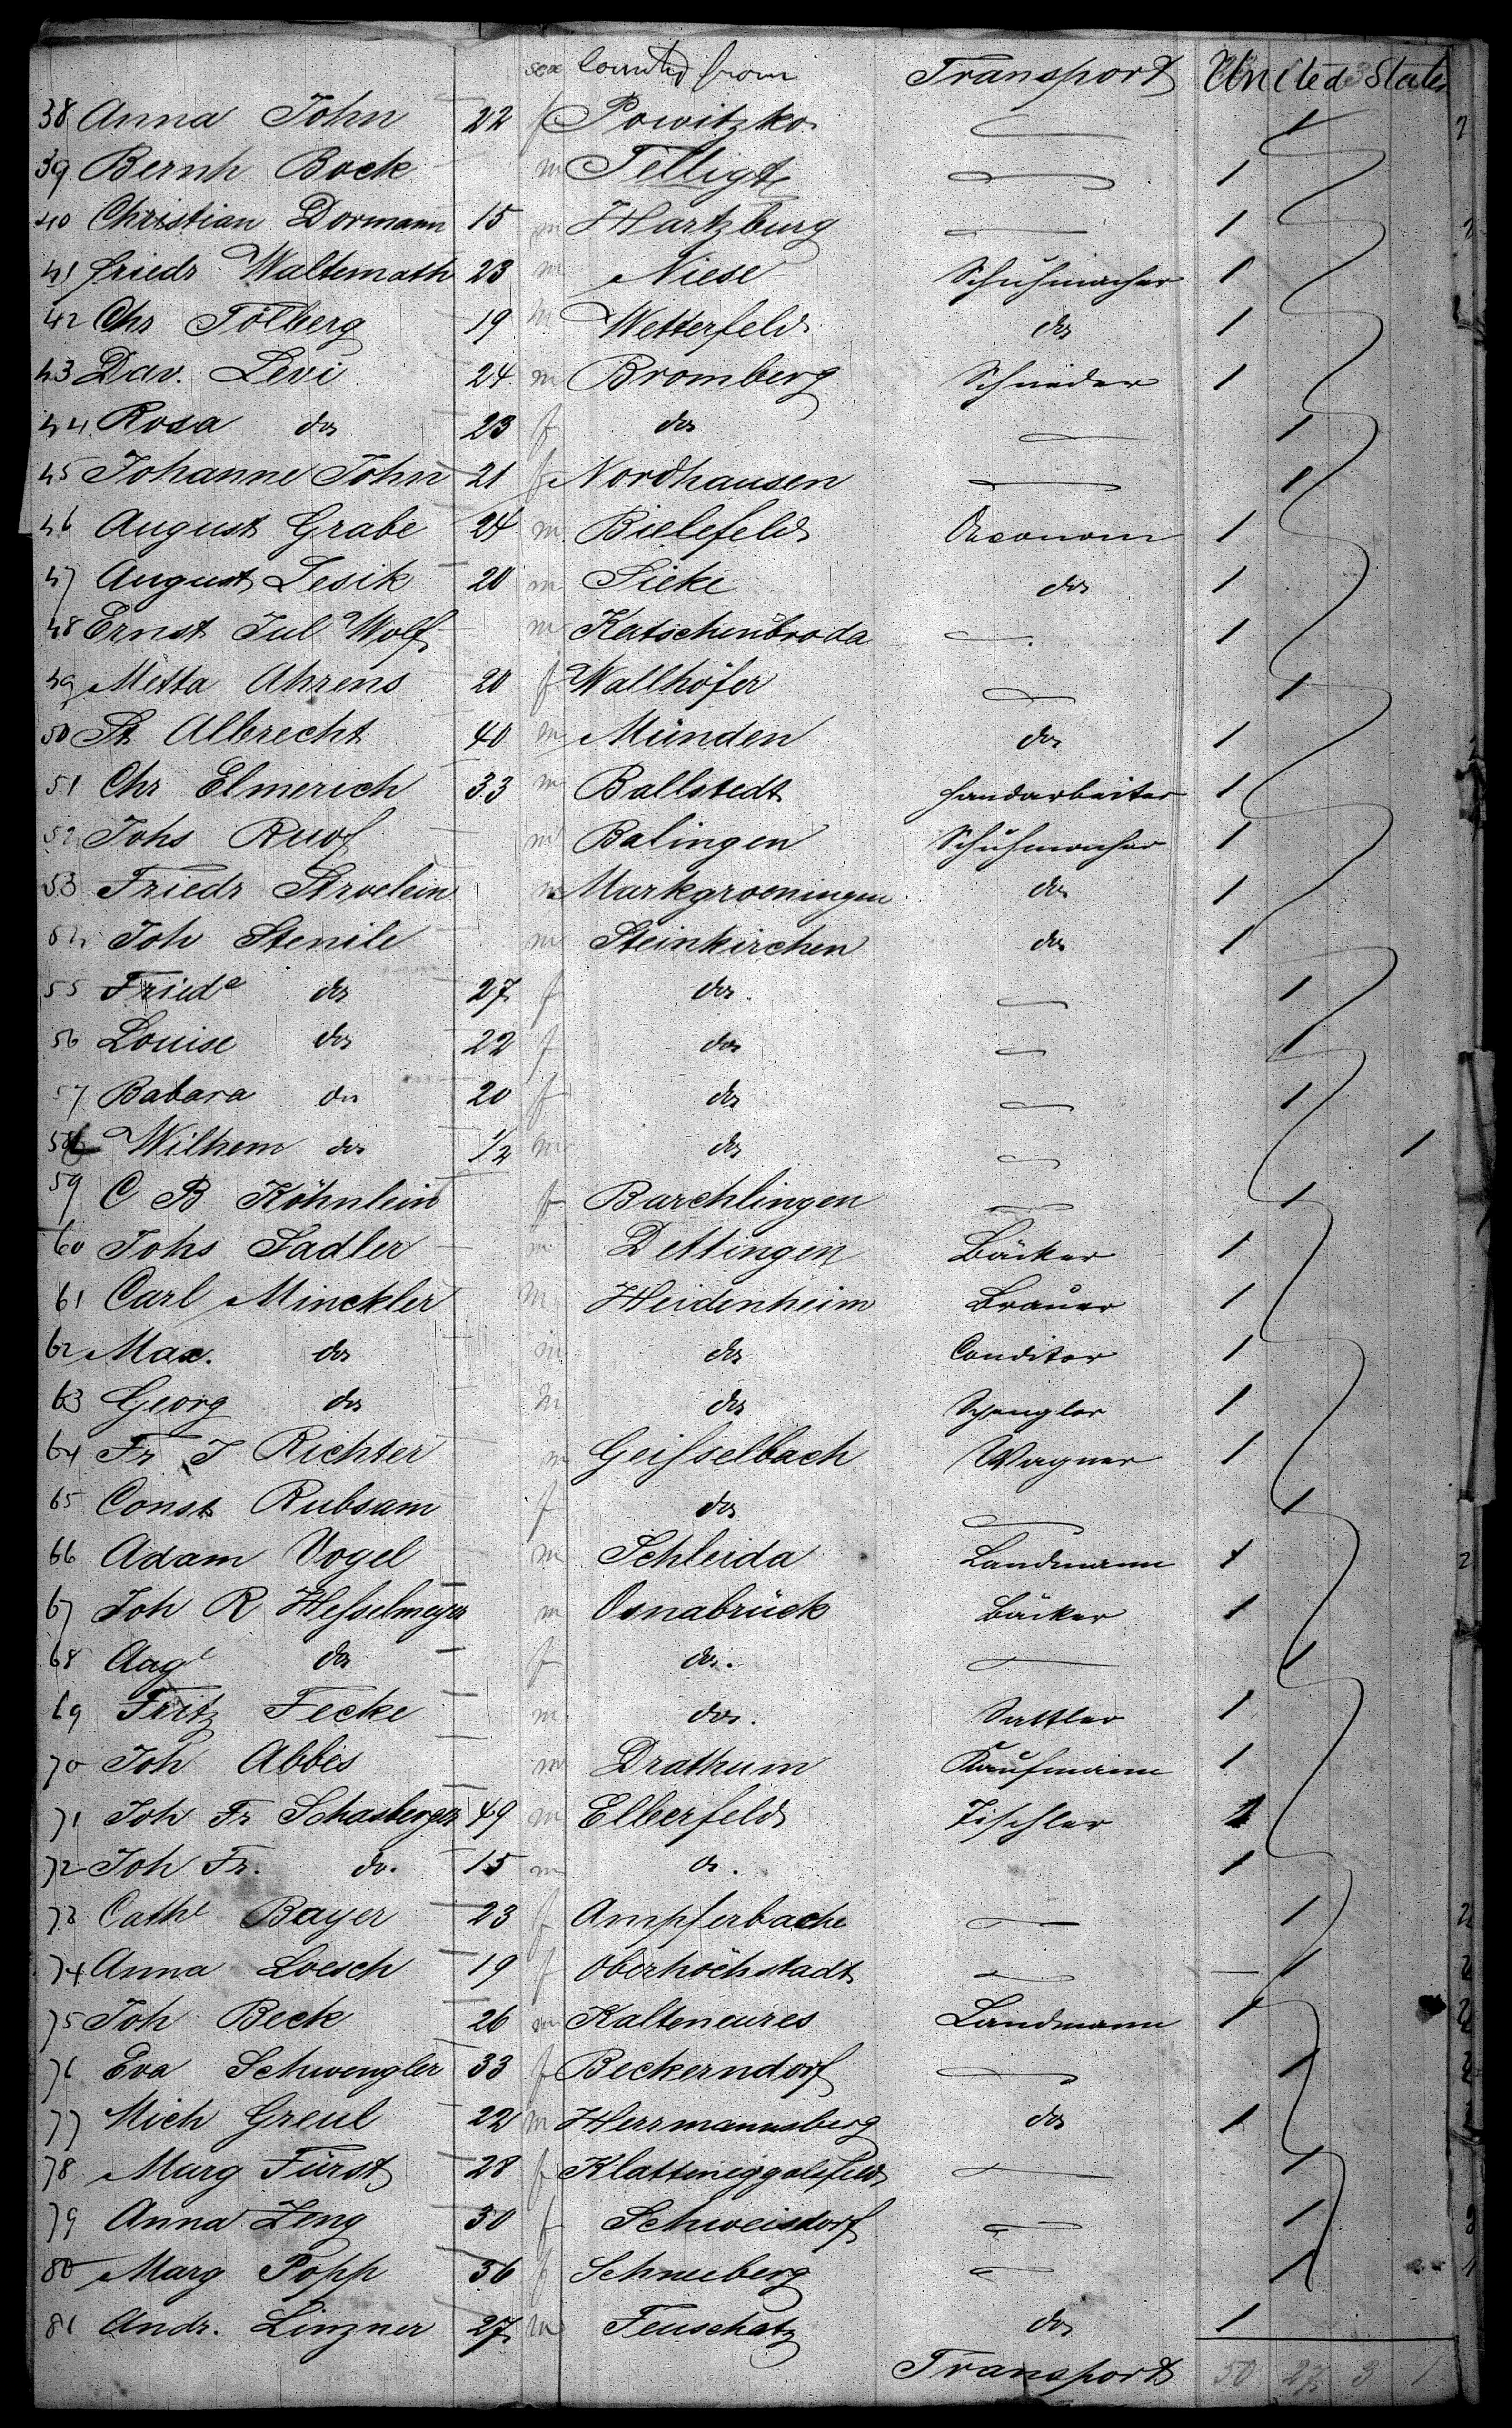 sex Country from Transport United States
38 Anna John 22 f Powitzko 1
39 Bernh Bock m Telligte 1
40 Christian Dormann 15 m Hartzburg 1
41 Friedr Waltemath 23 m Niese Schuhmacher 1
42 Chr Tölberg 19 m Wetterfeld do 1
43 Dav. Levi 24 m Bromberg Schneider 1
44 Rosa do 23 f do 1
45 Johanne John 21 f Nordhausen 1
46 August Grabe 24 m Bielefeld Oeconom 1
47 August Lesik 20 m Sieke do 1
48 Ernst Jul Wolf m Katschenbroda 1
49 Metta Ahrens 20 f Wallhöfer 1
50 St Albrecht 40 m Münden do 1
51 Chr Elmerich 33 m Ballstedt Handarbeiter 1
52 Johs Ruof m Balingen Schuhmacher 1
53 Friedr Stroelein m Markgroeningen do 1
54 Joh Stenile m Steinkirchen do 1
55 Friede do 27 f do. 1
56 Louise do 22 f do 1
57 Babara do 20 f do 1
58 Wilhem do 1/2 m do 1
59 C B Köhnlein f Barchlingen 1
60 Johs Sadler m Dettingen Bäcker 1
61 Carl Minckler m Heidenheim Brauer 1
62 Max. do m do Conditor 1
63 Georg do m do Spengler 1
64 Fr J Richter m Geisselbach Wagner 1
65 Const Rubsam f do 1
66 Adam Vogel m Schleida Landmann 1
67 Joh R Hesselmeyer m Osnabrück Bäcker 1
68 Auge do f do. 1
69 Fritz Fecke m do. Sattler 1
70 Joh Abbes m Drathum Kaufmann 1
71 Joh Fr Schasberger 49 m Elberfeld Tischler 1
72 Joh Fr. do. 15 m do. 1
73 Cathe Bayer 23 f Ampferbache 1
74 Anna Loesch 19 f Oberhöchstadt 1
75 Joh Beck 26 m Kalteneures Landmann 1
76 Eva Schwengler 33 f Beckerndorf 1
77 Mich Greul 22 m Herrmannsberg do 1
78 Marg Fürst 28 f 1
79 Anna Zeng 30 f Schweisdorf 1
80 Marg Popp 36 f Schneeberg 1
81 Andr. Linzner 27 m Feuschatz do 1
Transport 50 27 3 1